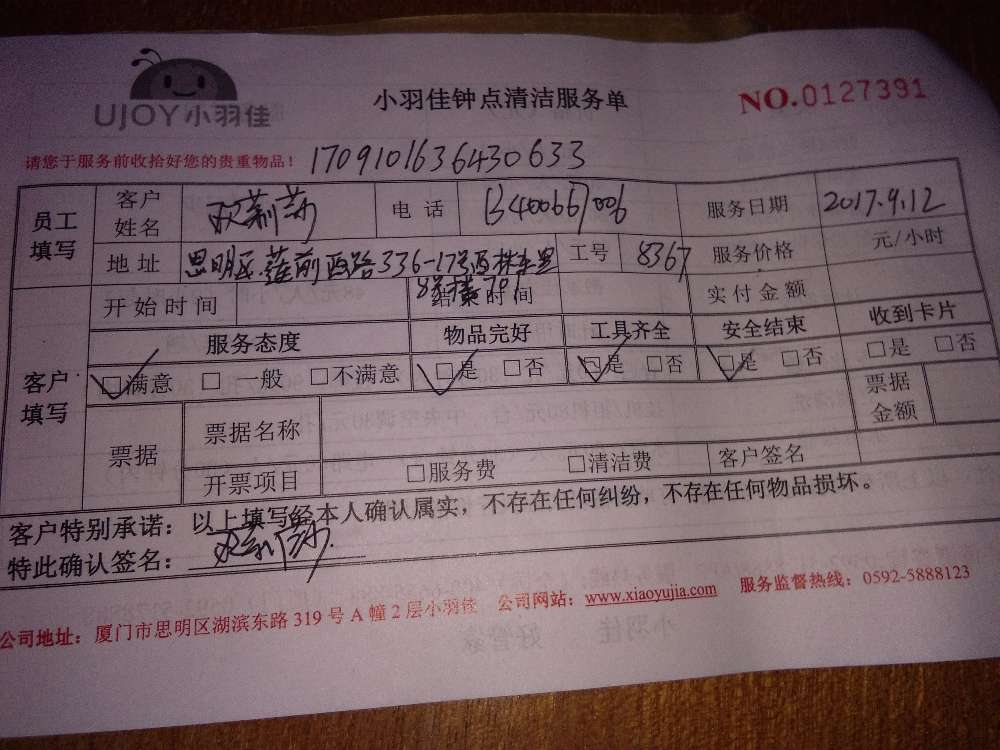 UJOY小羽佳
小羽佳钟点清洁服务单
NO.0127391
请您于服务前收拾好您的贵重物品！ 1709101636430633
员工填写 客户姓名 电话 服务日期 2017.9.12
地址 思明区 莲前西路336-17号西林东里 工号 8367 服务价格 元/小时
8号楼701
客户填写 开始时间 结束时间 实付金额
服务态度 物品完好 工具齐全 安全结束 收到卡片
☑满意 □一般 □不满意 ☑是 □否 ☑是 □否 ☑是 □否 □是 □否
票据 票据名称 票据金额
开票项目 □服务费 □清洁费 客户签名
客户特别承诺：以上填写经本人确认属实，不存在任何纠纷，不存在任何物品损坏。
特此确认签名：
公司地址：厦门市思明区湖滨东路319号A幢2层小羽佳 公司网站：www.xiaoyujia.com 服务监督热线：0592-5888123